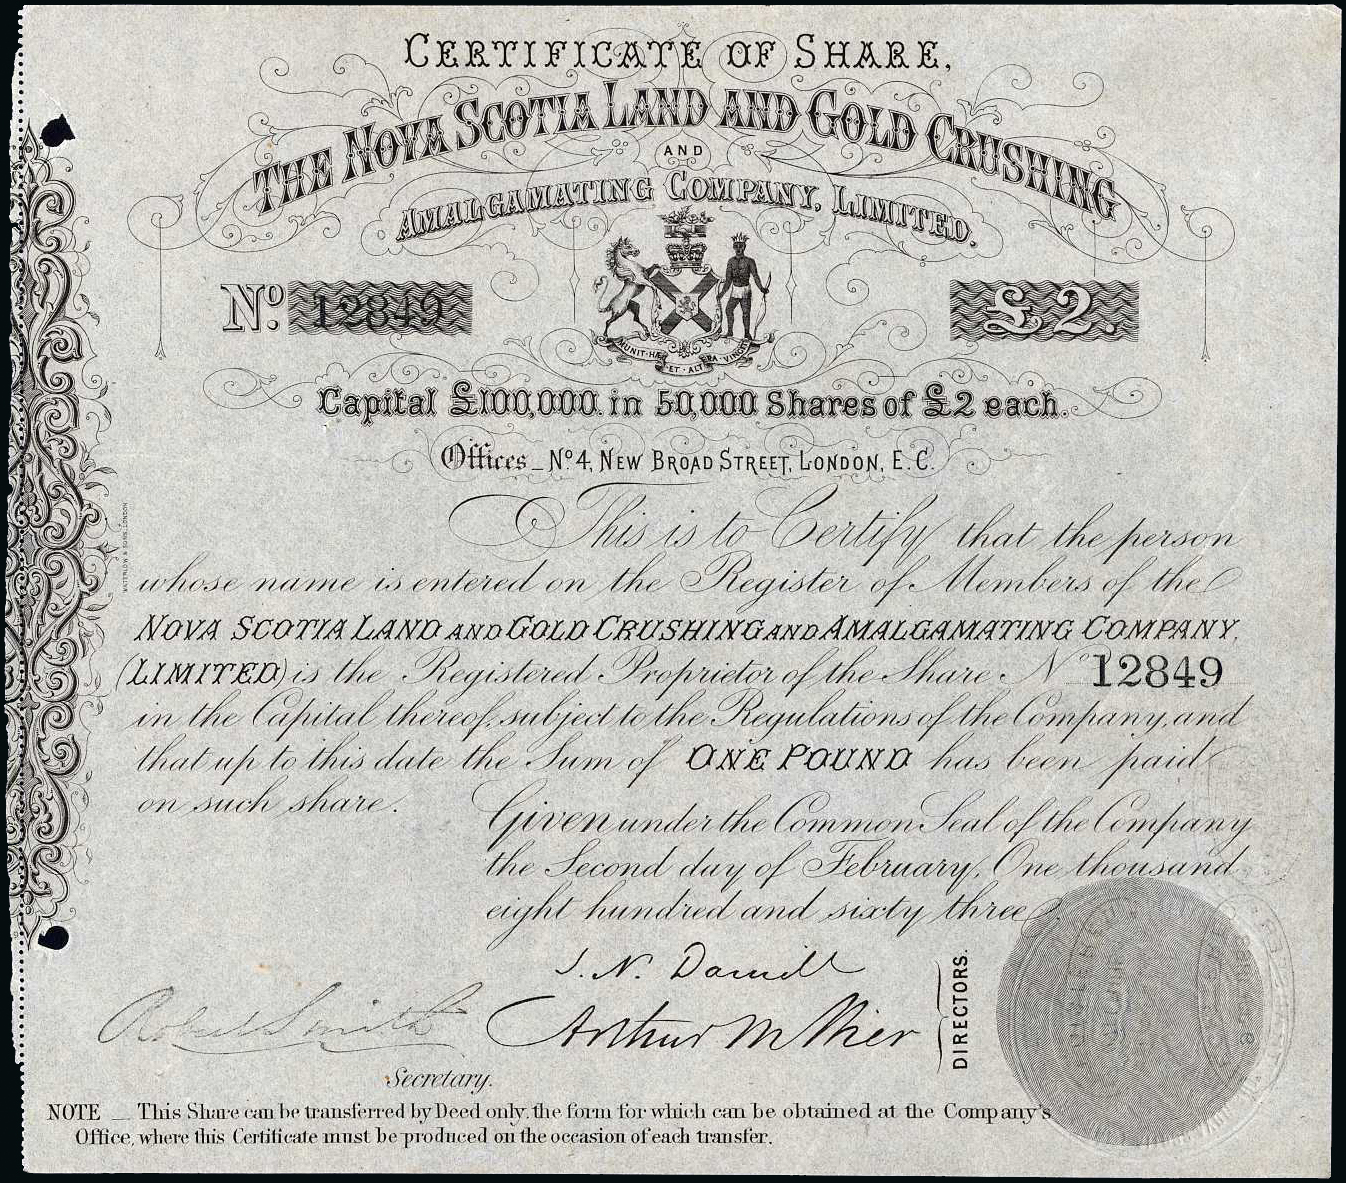 CERTIFICATE OF SHARE,
THE NOVA SCOTIA LAND AND GOLD CRUSHING
AND
AMALGAMATING COMPANY, LIMITED.
No. 12849
£2.
MUNIT·HÆC ET·ALTERA·VINCIT
Capital £100,000. in 50,000 Shares of £2 each.
Offices _ No 4, NEW BROAD STREET, LONDON, E.C.
This is to Certify that the person
whose name is entered on the Register of Members of the
NOVA SCOTIA LAND AND GOLD CRUSHING AND AMALGAMATING COMPANY,
(LIMITED) is the Registered Proprietor of the Share No 12849
in the Capital thereof, subject to the Regulations of the Company, and
that up to this date the Sum of ONE POUND has been paid
on such share.
Given under the Common Seal of the Company
the Second day of February, One thousand
eight hundred and sixty three
Robert Smith
Secretary.
Arthur
DIRECTORS.
NOTE _ This Share can be transferred by Deed only, the form for which can be obtained at the Company's
Office, where this Certificate must be produced on the occasion of each transfer.